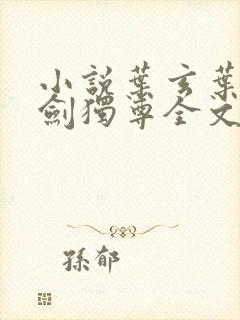 小説葉玄葉
劍獨尊全文
孫郁